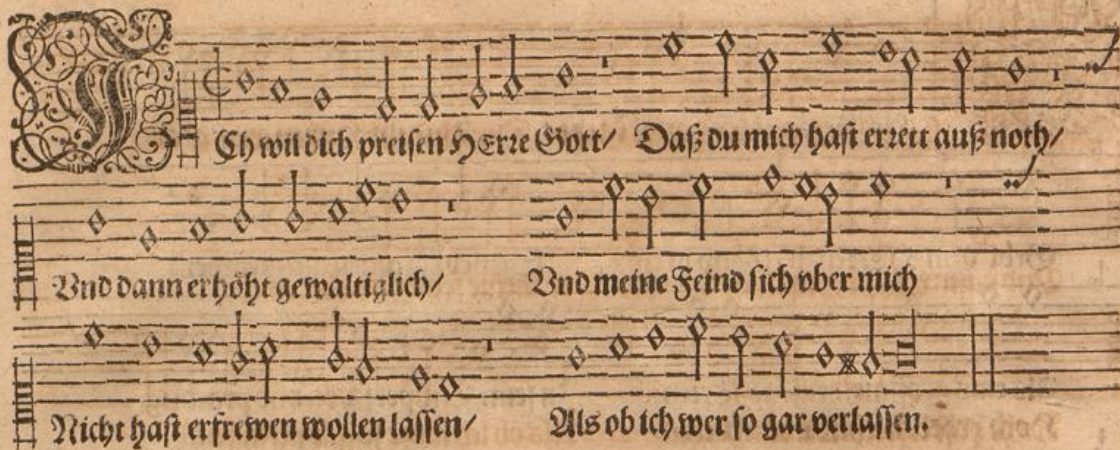 ICh wil dich preisen HErre Gott/ Daß du mich hast errett auß noth/
Vnd dann erhöht gewaltiglich/ Vnd meine Feind sich vber mich
Nicht hast erfrewen wollen lassen/ Als ob ich wer so gar verlassen.